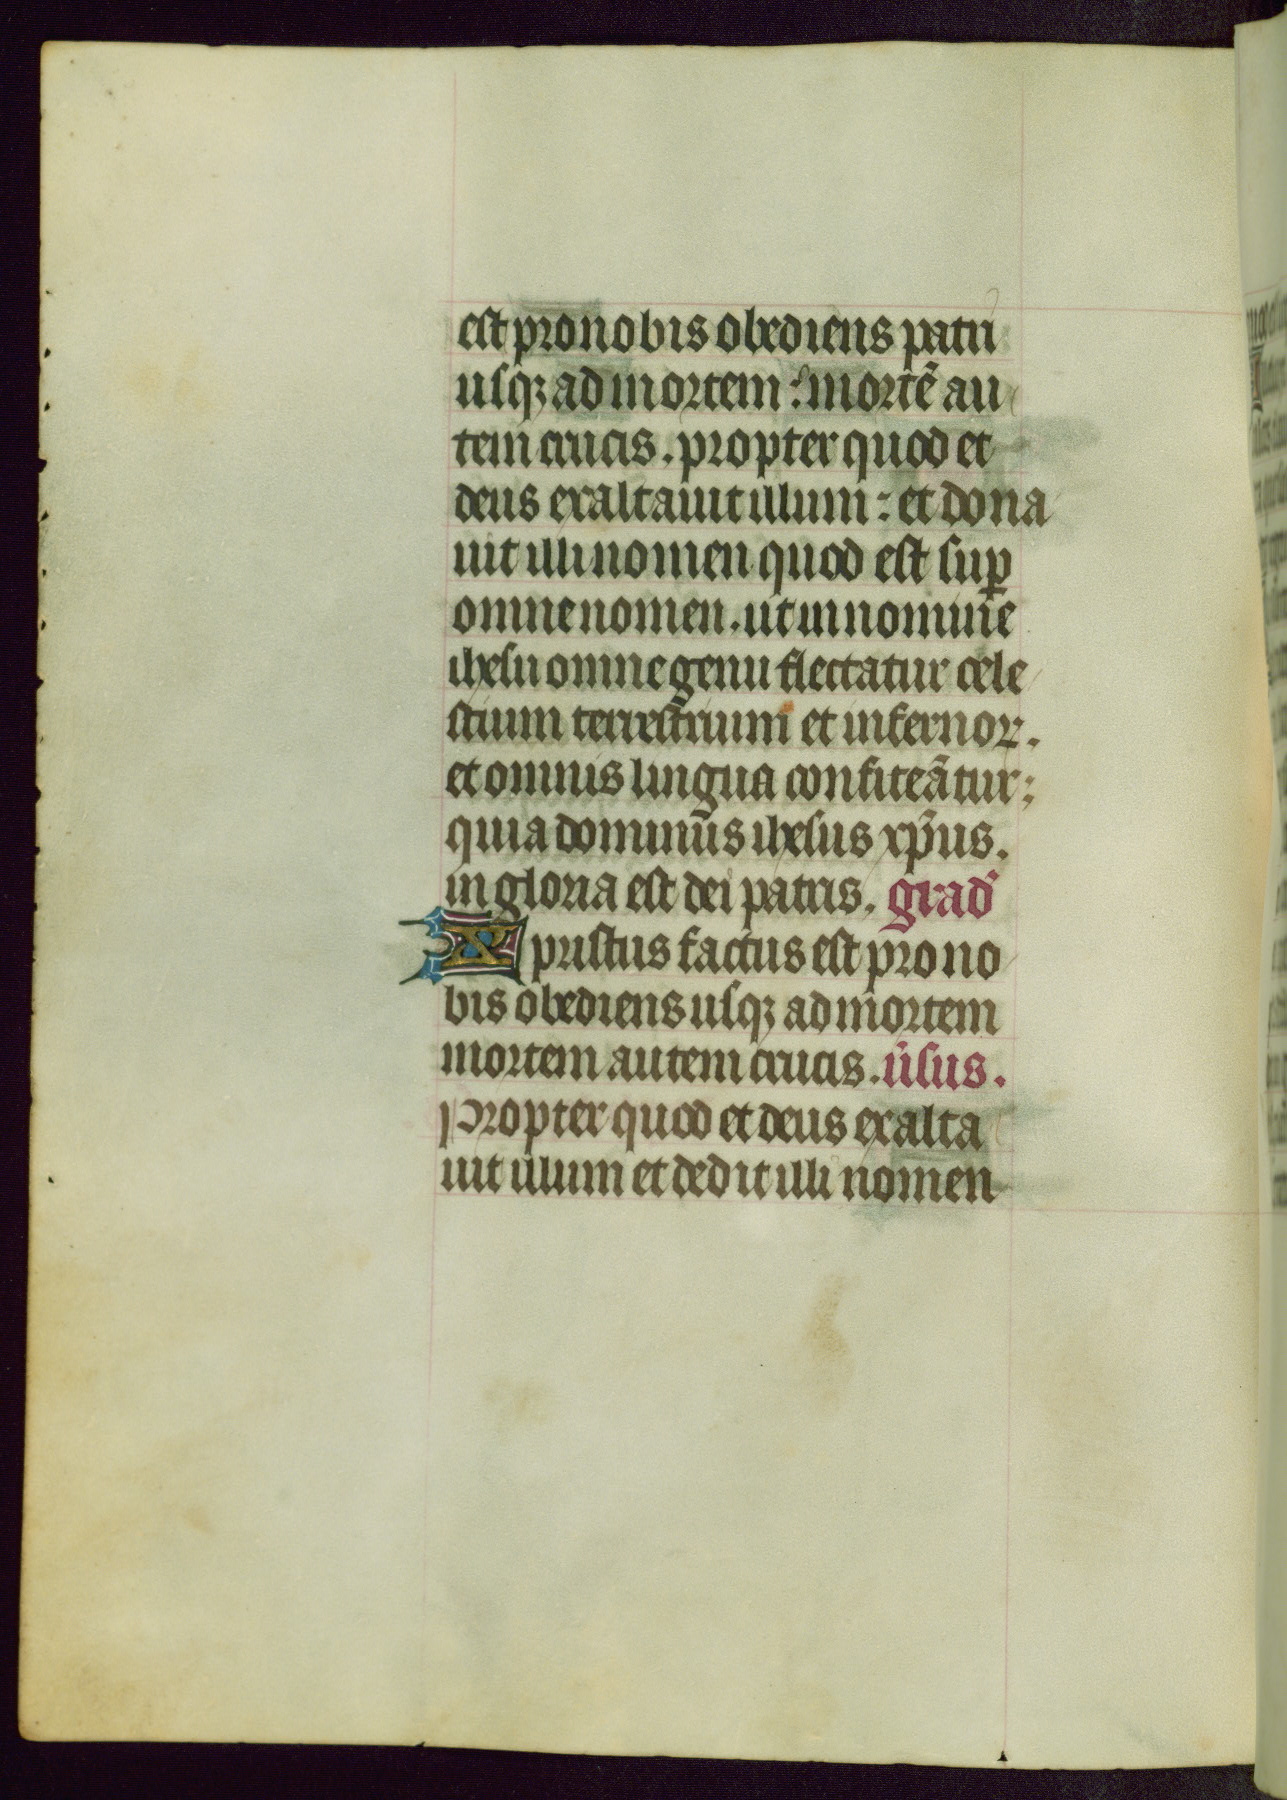 est pro nobis obediens patri
usqꝫ ad mortem : mortē au
tem crucis . propter quod et
deus exaltauit illum : et dona
uit illi nomen quod est suꝑ
omne nomen . ut in nomine
ihesu omne genu flectatur cele
stium terrestrium et infernoꝝ .
et omnis lingua confiteātur :
quia dominus ihesus xp̄us .
in gloria est dei patris . grad᾽
Xpristus factus est pro no
bis obediens usqꝫ ad mortem
mortem autem crucis . u̾sus .
Propter quod et deus exalta
uit illum et dedit illi nomen